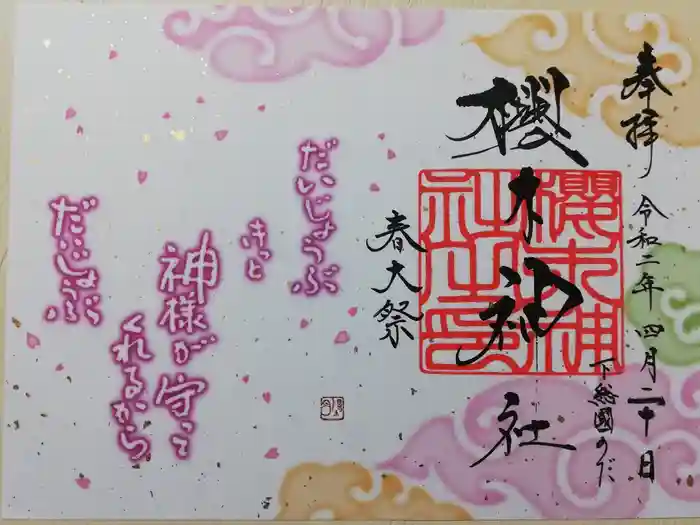 奉拝
令和二年 四月二十日
下総國のだ
櫻木神社
櫻木神社之印
春大祭
だいじょうぶ
きっと
神様が守って
くれるから
だいじょぶ